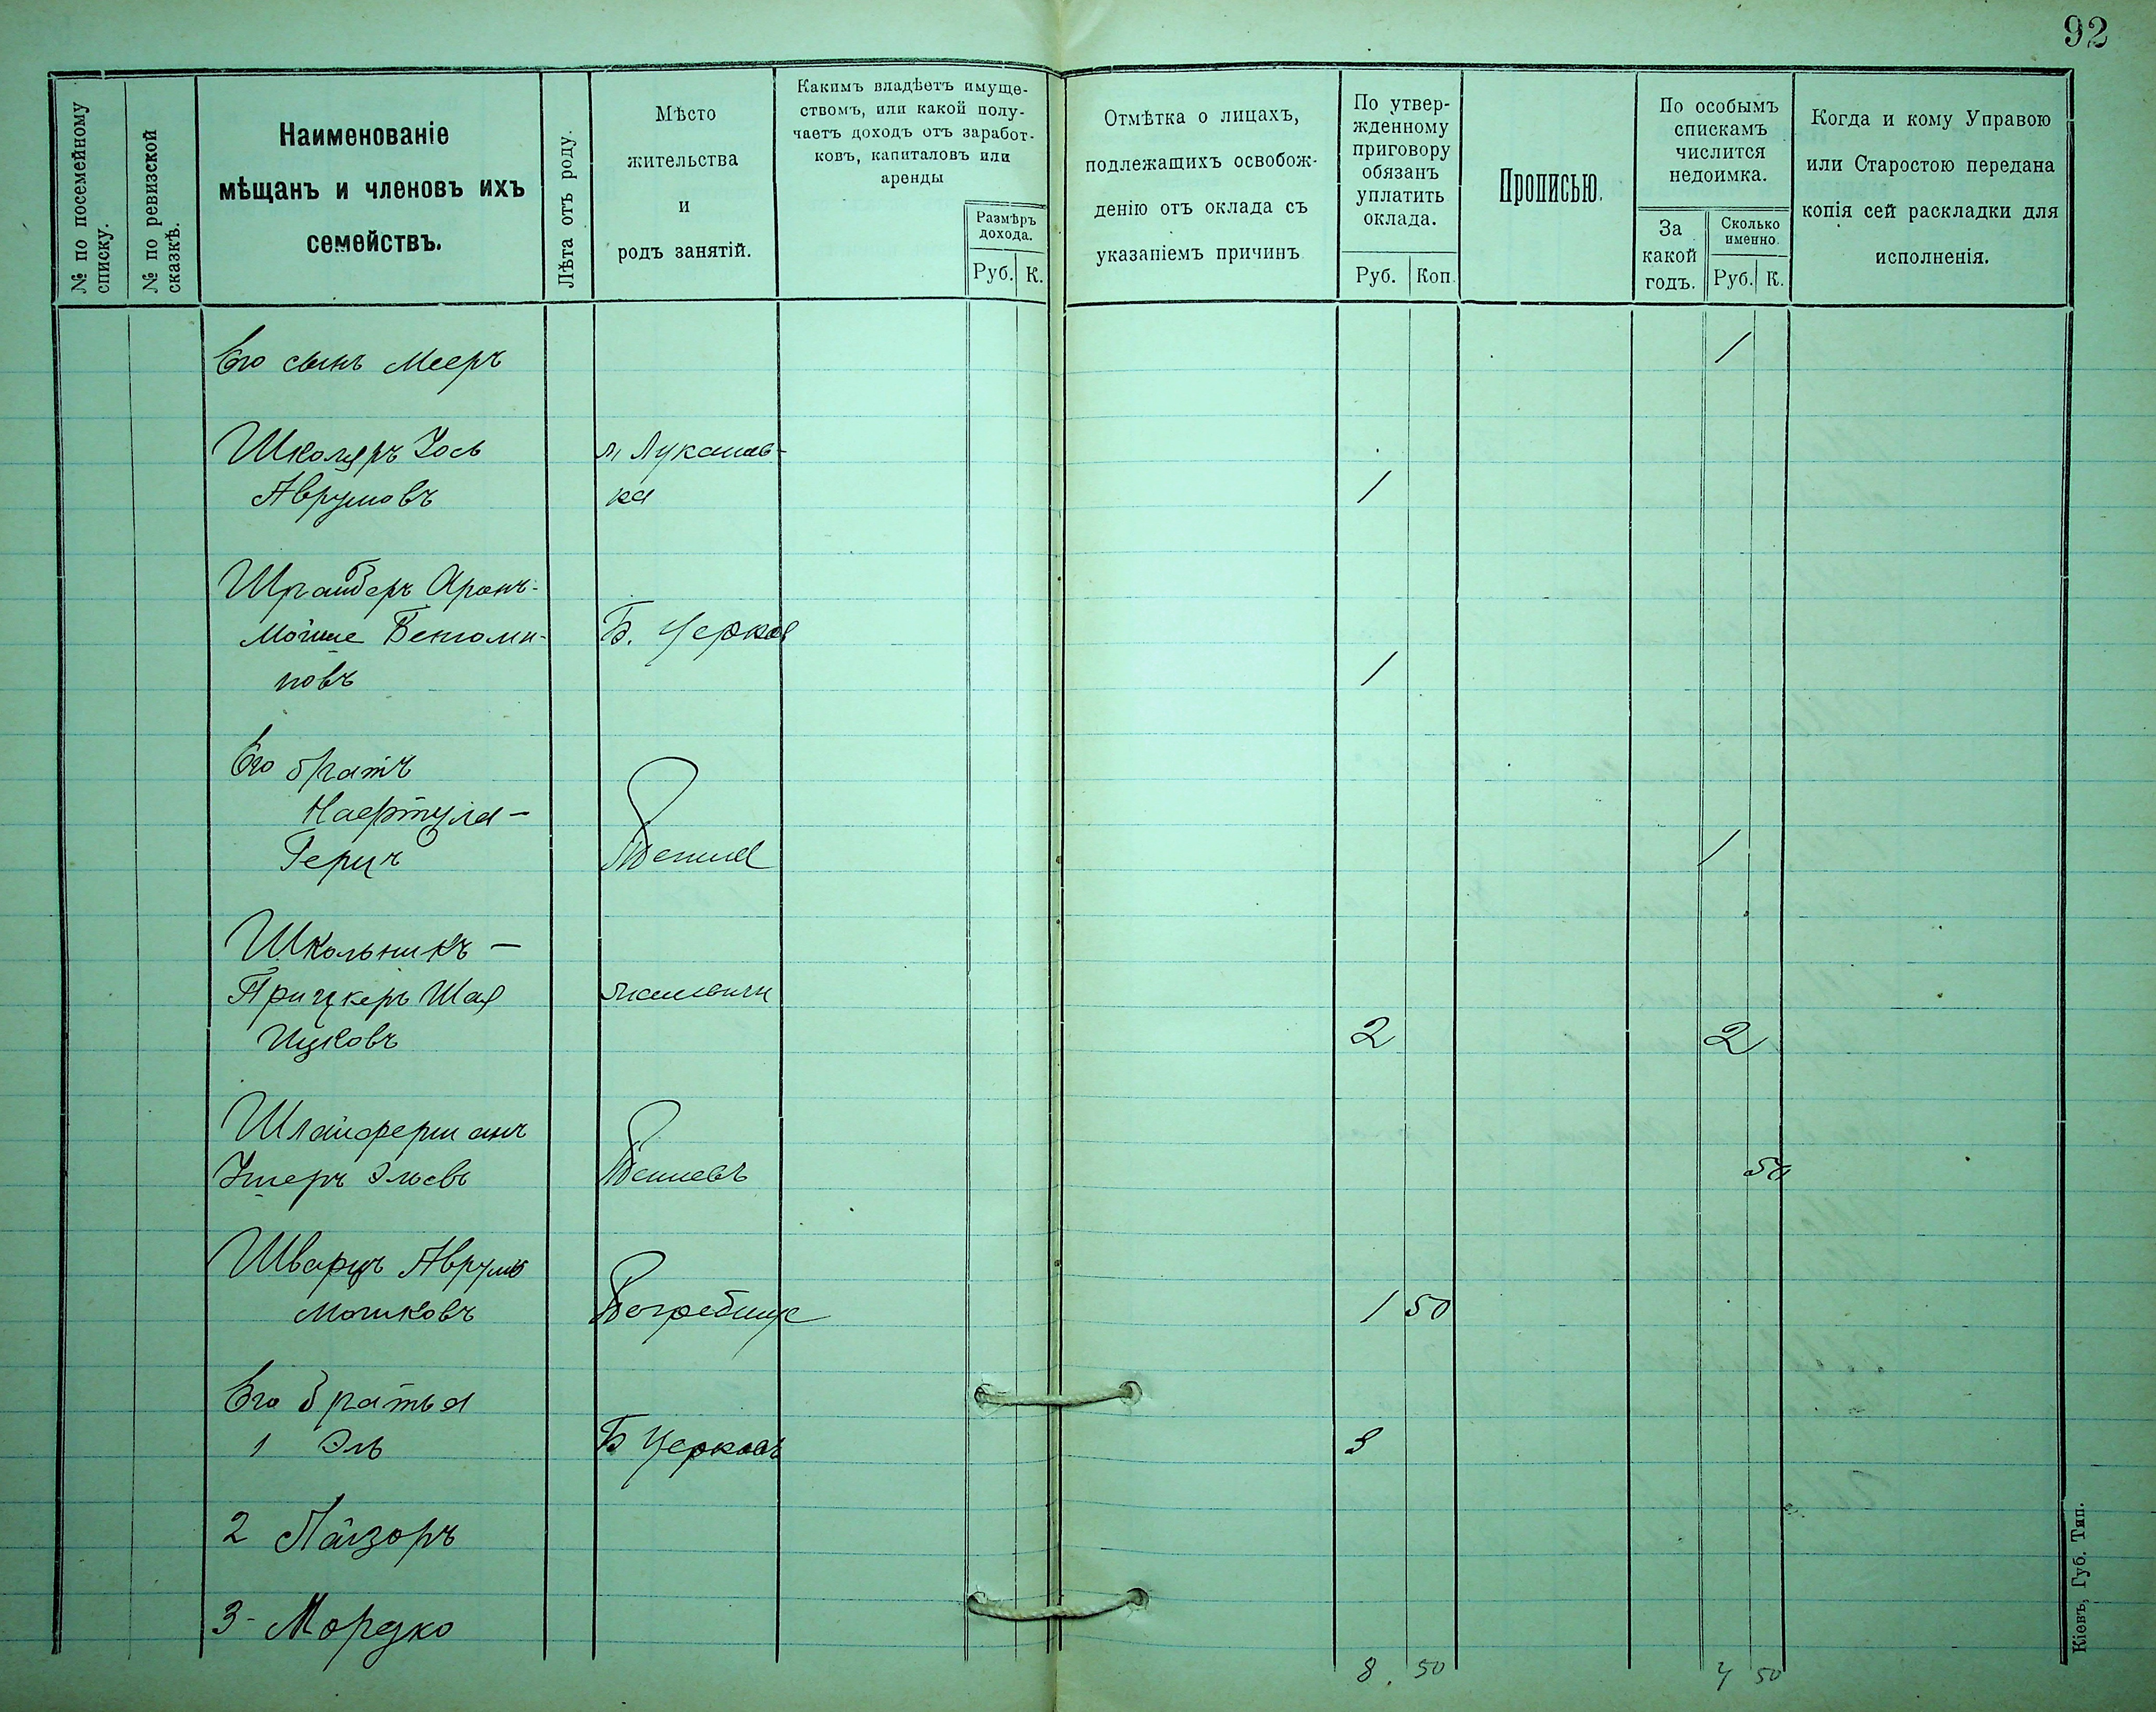 92
№ по посемейному
списку.
№ по ревизской
сказкѣ.
Наименованіе
мѣщанъ и членовъ ихъ
семействъ.
Лѣта отъ роду.
Мѣсто
жительства
и
родъ занятій.
Какимъ владѣетъ имуще-
ствомъ, или какой полу-
чаетъ доходъ отъ заработ-
ковъ, капиталовъ или
аренды
Размѣръ
дохода.
Руб. К.
Отмѣтка о лицахъ,
подлежащихъ освобож-
денію отъ оклада съ
указаніемъ причинъ
По утвер-
жденному
приговору
обязанъ
уплатить
оклада.
Руб. Коп.
Прописью.
По особымъ
спискамъ
числится
недоимка.
За
какой
годъ.
Сколько
именно.
Руб. К.
Когда и кому Управою
или Старостою передана
копія сей раскладки для
исполненія.
Его сынъ Мееръ 1
Школяръ Іось м Лукашев-
Аврумовъ ка 1
Шрайберъ Аронъ-
Мойше Беньоми- Б. Церковь
новъ 1
Его братъ
Нафтула-
Герцъ 1
Школьникъ-
Прицкеръ Шая
Ицковъ 2 2
Шлайферманъ
Ушеръ Эльевъ 50
Шварцъ Аврумъ
Мошковъ Погребище 1 50
Его братья
1 Эль Б Церковь 3
2 Лайзоръ
3- Мордко
8. 50 4 50
Кіевъ, Губ. Тип.